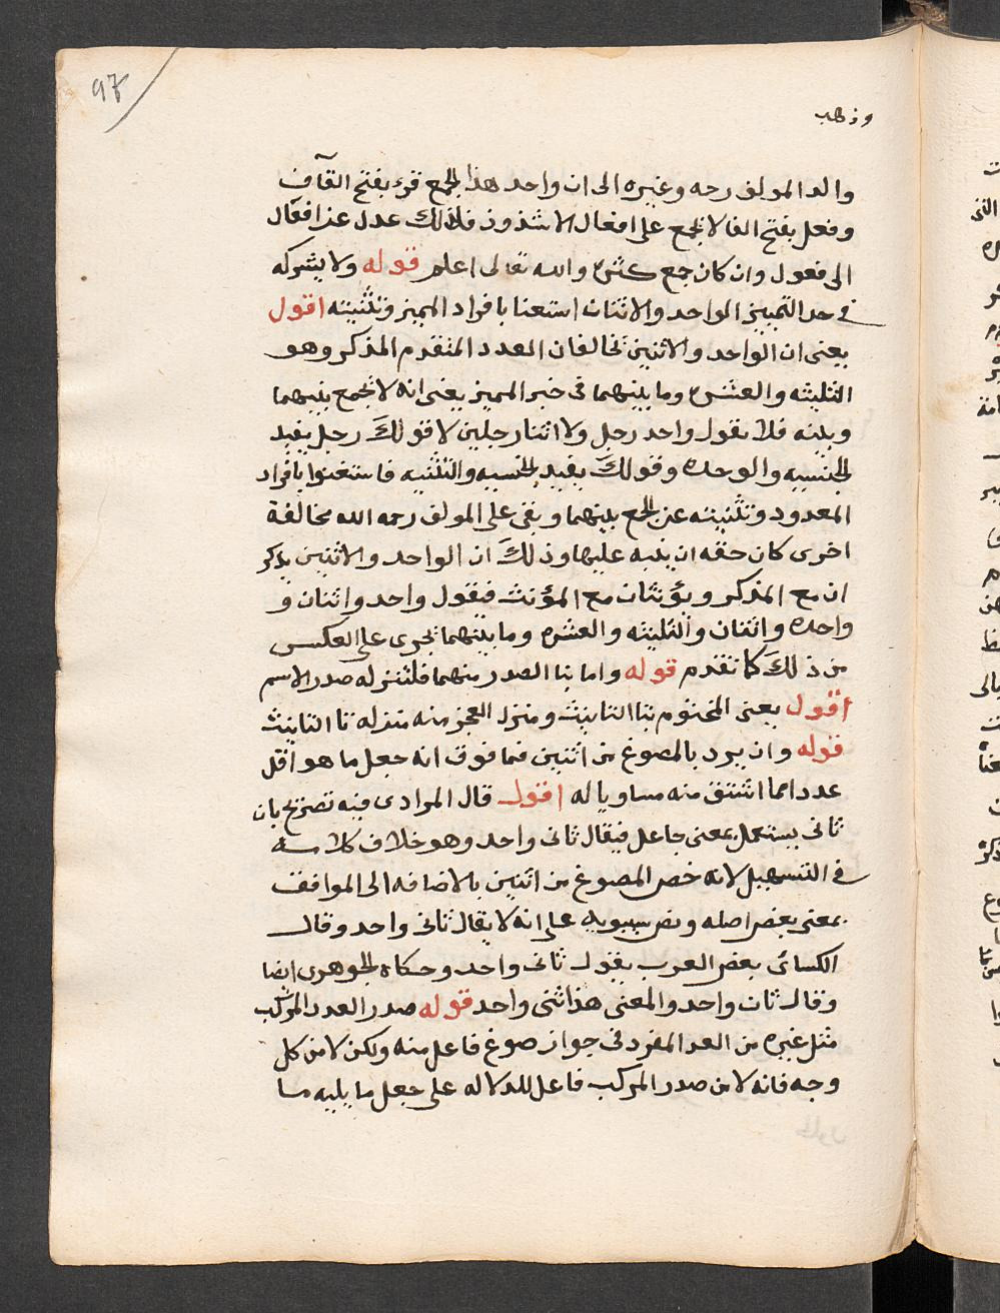 97
وذهب
والد المولف رحه وغيره الى ان واحد هذا الجمع قرء بفتح القآف
وفعل بفتح الفا لا يجمع على افعال الا شذوذ فلذلك عدل عن افعال
الى فعول وان كان جمع كثرة والله تعالى اعلم قوله ولا يشركه
في حد التمييز الواحد والاثنان استغنا بافراد المميز وتثنيته اقول
يعنى ان الواحد والاثنين تخالفان العدد المتقدم المذكر وهو
الثليثه والعشرة وما بينهما فى خبر المميز يعنى انه لا تجمع بينهما
وبينه فلا يقول واحد رجل ولا اثنا رجلين لا قولكَ رجل يفيد
الجنسيه والوحده وقولكَ يفيد الجنسيه والتثنيه فاستغنوا بافراد
المعدود وتثنيته عن الجمع بينهما وبقى على المولف رحمه الله مخالفة
اخرى كان حقه ان ينبه عليها وذلكَ ان الواحد والاثنين يذكر
ان مع المذكر ويؤنثان مع المؤنث فيقول واحد واثنان و
واحده واثنتان والثليثه والعشره وما بينهما تجرى على العكس
من ذلكَ كما تقدم قوله واما بنا الصدر منهما فلتنزله صدر الاسم
اقول يعنى المختوم بتا التانيث ومنزل العجز منه منزله تا التانيث
قوله وان يرد بالمصوغ من اثنين فما فوق انه جعل ما هو اقل
عددا مما اشتق منه مساويا له اقول قال المرادى فيه تصريح بان
ثانى يستعمل بمعنى جاعل فيقال ثانى واحد وهو خلاف كلامه
في التسهيل لانه خص المصوغ من اثنين بالاضافه الى الموافق
بمعنى بعض اصله ونص سيبويه على انه لا يقال ثانى واحد وقال
الكسائى بعض العرب يقول ثانى واحد وحكاه الجوهرى ايضا
وقال ثان واحد والمعنى هذا ثنى واحد قوله صدر العدد المركب
مثل غيره من العد المفرد فى جواز صوغ فاعل منه ولكن لا من كل
وجه فانه لا من صدر المركب فاعل للدلاله على جعل ما يليه مسا